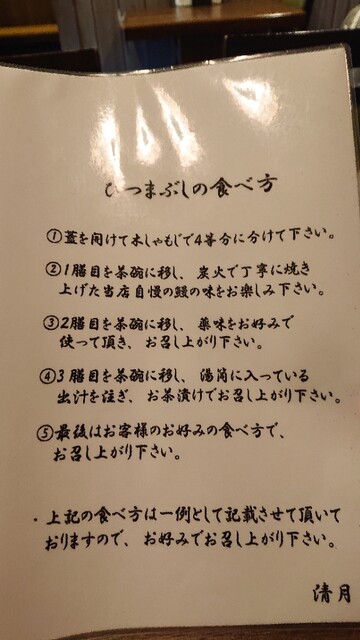 ひつまぶしの食べ方
①蓋を開けて木しゃもじで4等分に分けて下さい。
②1膳目を茶碗に移し、炭火で丁寧に焼き
上げた当店自慢の鰻の味をお楽しみ下さい。
③2膳目を茶碗に移し、薬味をお好みで
使って頂き、お召し上がり下さい。
④3膳目を茶碗に移し、湯筒に入っている
出汁を注ぎ、お茶漬けでお召し上がり下さい。
⑤最後はお客様のお好みの食べ方で、
お召し上がり下さい。
・上記の食べ方は一例として記載させて頂いて
おりますので、お好みでお召し上がり下さい。
清月